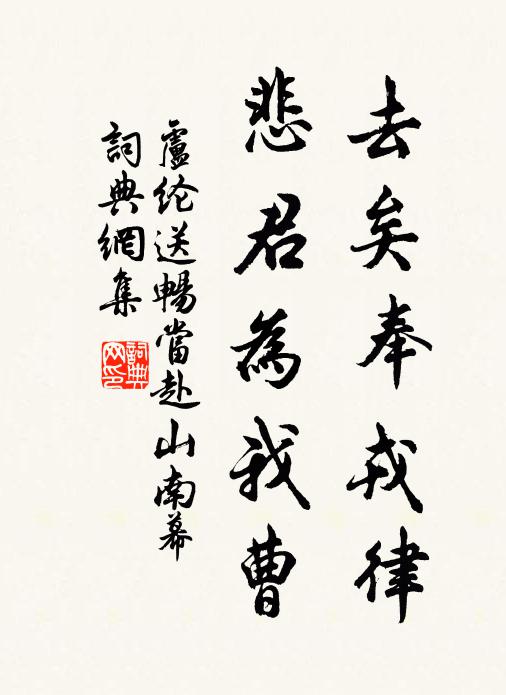 去矣奉戎律
悲君為我曹
盧纶送暢當赴山南幕
詞典網集
詞典
网印